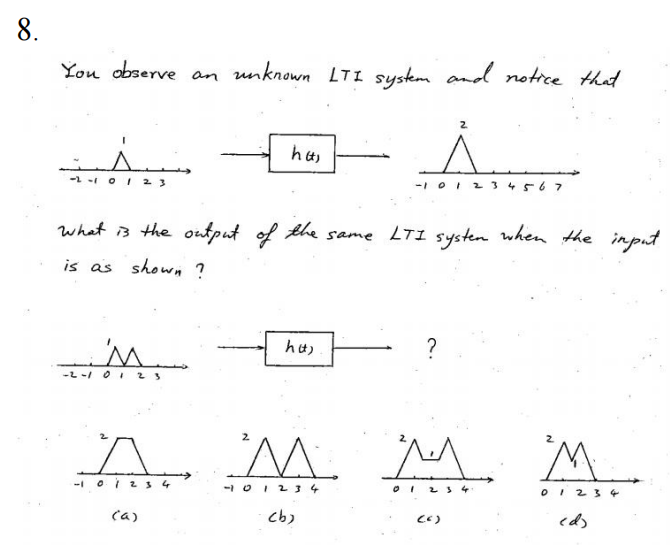 8.
You observe an unknown LTI system and notice that
1
h(t)
2
-2 -1 0 1 2 3
-1 0 1 2 3 4 5 6 7
What is the output of the same LTI system when the input
is as shown ?
1
h(t)
?
-2 -1 0 1 2 3
2
2
2
1
2
1
-1 0 1 2 3 4
-1 0 1 2 3 4
0 1 2 3 4
0 1 2 3 4
(a)
(b)
(c)
(d)